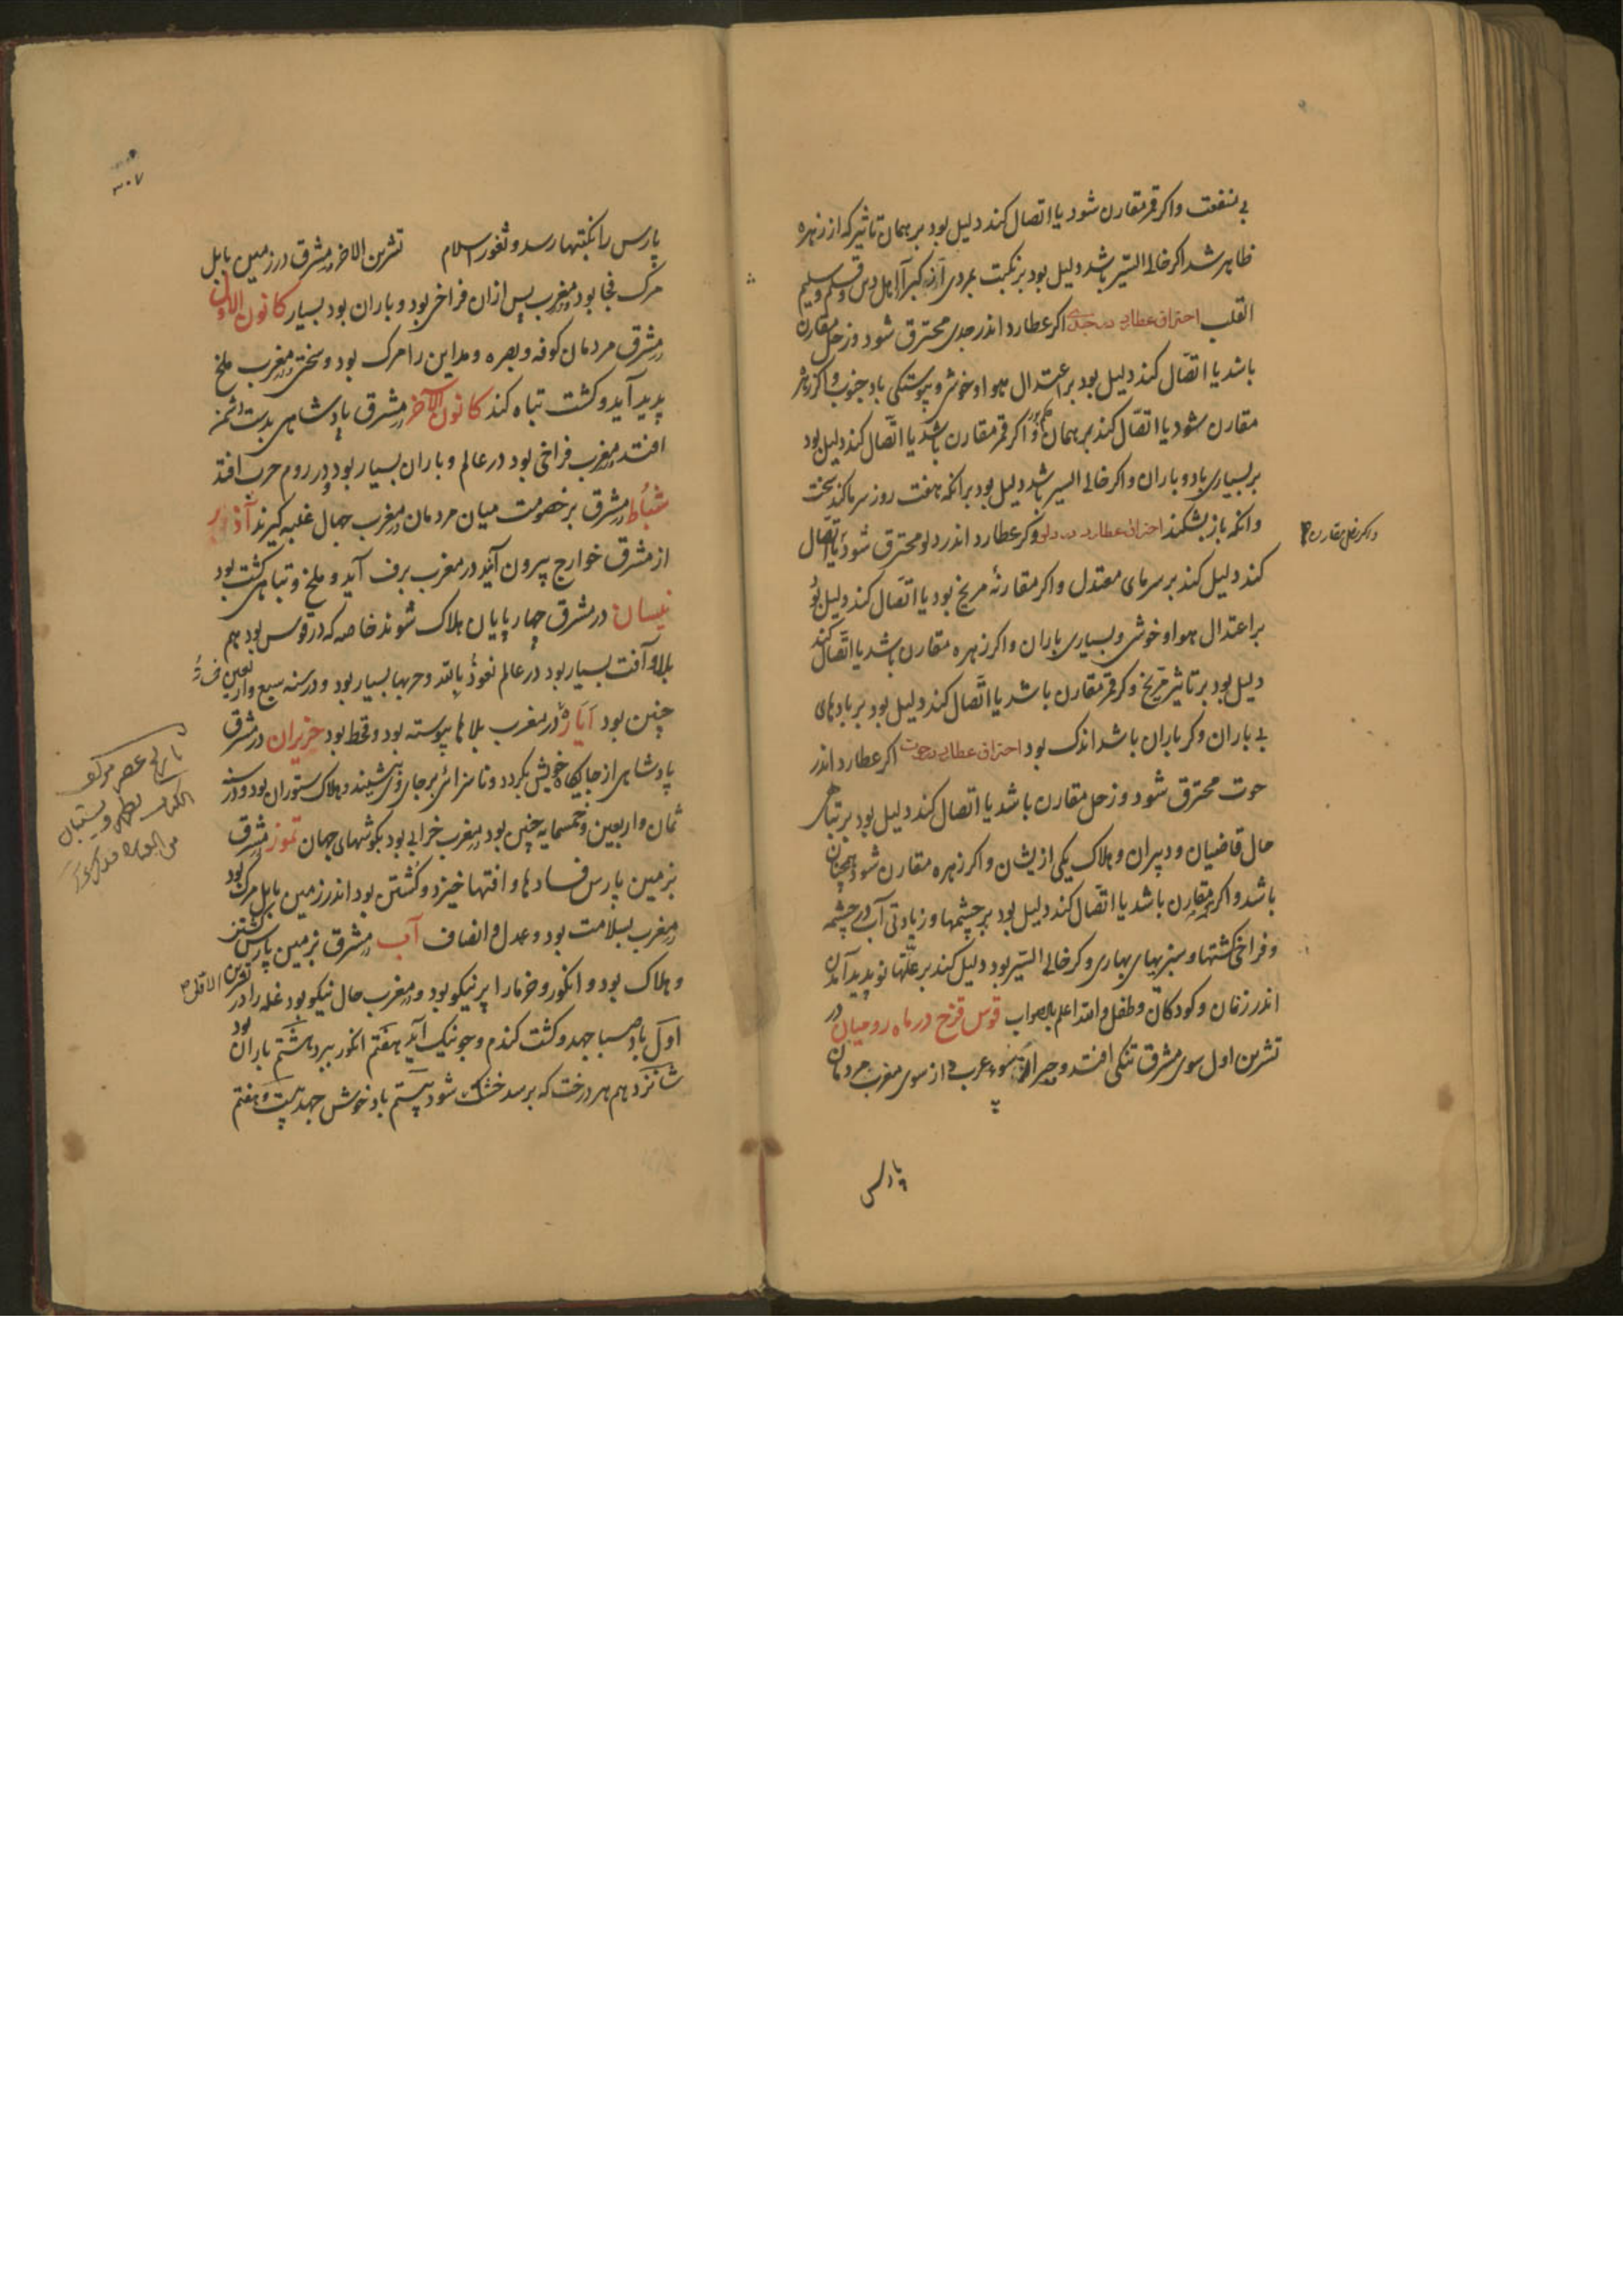 بی منفعت واکر قمر مقارن شود یا اتصال کند دلیل بود بر همان تاثیر که از زهره
ظاهر شد اکر خالی السیر باشد دلیل بود بر نکبت مردی از اهل
القلب احتراق عطارد در جدی اکر عطارد اندر جدی محترق شود وزحل مقارن
باشد یا اتصال کند دلیل بود بر اعتدال هوا و خوشی و پیوستکی باد جنوب واکر زهره
مقارن شود یا اتصال کند بر همان واکر قمر مقارن باشد یا اتصال کند دلیل بود
بر بسیاری باد و باران واکر خالی السیر باشد دلیل بود بر انکه هفت روز سرما کند سخت
وانکه باز بشکند احتراق عطارد در دلو وکر عطارد اندر دلو محترق شود یا اتصال
واکر زحل مقارن
کند دلیل کند بر سرمای معتدل واکر مقارنهٔ مریخ بود یا اتصال کند دلیل بود
بر اعتدال هوا و خوشی و بسیاری باران واکر زهره مقارن باشد یا اتصال کند
دلیل بود بر تاثیر مریخ وکر قمر مقارن باشد یا اتصال کند دلیل بود بر بادهای
بی باران وکر باران باشد اندک بود احتراق عطارد در حوت اکر عطارد اندر
حوت محترق شود وزحل مقارن باشد یا اتصال کند دلیل بود بر تباهی
حال قاضیان و دبیران و هلاک یکی ازیشان واکر زهره مقارن شود همچنان
باشد واکر مقارن باشد یا اتصال کند دلیل بود بر چشمها و زیادتی آب در چشمه
و فراخی کشتها و سبزیهای بهاری وکر خالی السیر بود دلیل کند بر علتها نو پدید آمدن
اندر زنان و کودکان و طفل والله اعلم بالصواب قوس قزح در ماه رومیان در
تشرین اول سوی مشرق تنکی افتد و عرب و از سوی مغرب مردمان
پارس
۳۰۷
پارس را نکبتها رسد و ثغور اسلام تشرین الاخر در مشرق در زمین بابل
مرک فجا بود در مغرب پس ازان فراخی بود و باران بود بسیار کانون الاول
در مشرق مردمان کوفه و بصره و مداین را مرک بود و سختی در مغرب ملخ
پدید آید و کشت تباه کند کانون الآخر در مشرق پادشاهی بدست دشمن
افتد در مغرب فراخی بود در عالم و باران بسیار بود و در روم حرب افتد
شباط در مشرق بر خصومت میان مردمان در مغرب جبال غلبه کیرند آذر
از مشرق خوارج بیرون آیند در مغرب برف آید و ملخ و تباهی کشت بود
نیسان در مشرق چهار پایان هلاک شوند خاصه که در قوس بود هم
بلا و آفت بسیار بود در عالم نعوذ بالله و حربها بسیار بود و در سنه سبع واربعین
چنین بود ایار در مغرب بلاها پیوسته بود و قحط بود حزیران در مشرق
پادشاهی از جایکاه خویش بکردد و ناسزائی بر جای وی نشیند و هلاک ستوران بود و در سنه
ثمان واربعین وخمسمایه چنین بود در مغرب خرابی بود بکوشهای جهان تموز در مشرق
بزمین پارس فسادها و افتها خیزد و کشتن بود اندر زمین بابل مرک بود
در مغرب بسلامت بود و عدل و انصاف آب در مشرق بزمین پارس کشتن
و هلاک بود و انکور و خرما را بر نیکو بود و در مغرب حال نیکو بود غله را در تشرین الاول
اول باد صبا جهد و کشت کندم و جو نیک آید هفتم انکور ببرد هشتم باران بود
شانزدهم هر درخت که برسد خشک شود بیستم باد خوش جهد بیست و هفتم